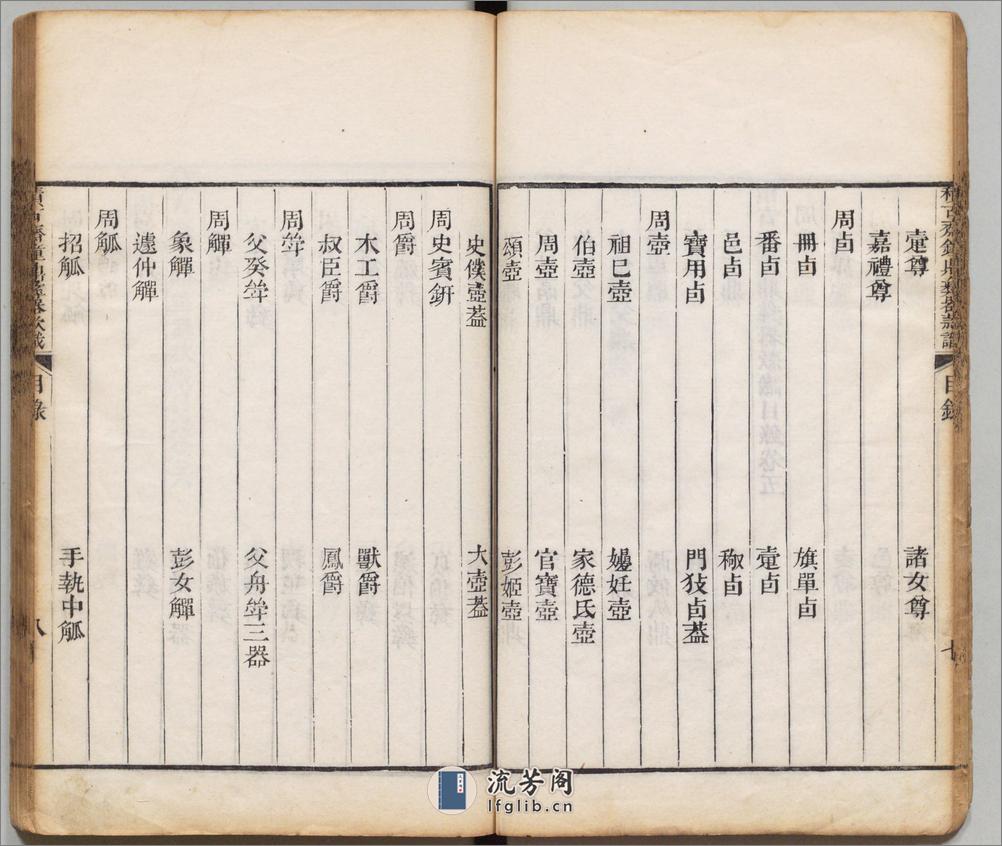 疐尊　諸女尊
嘉禮尊
周卣
冊卣　旗單卣
番卣　疐卣
邑卣　𥠖卣
寶用卣　門犮卣葢
周壺
祖巳壺　嬎妊壺
伯壺　家德氏壺
周壺　官寶壺
頌壺　彭姬壺
史僕壺葢　大壺葢
周史賓鈃
周爵
木工爵　獸爵
叔臣爵　鳳爵
周斝
父癸斝　父舟斝三器
周觶
象觶　彭女觶
遽仲觶
周觚
招觚　手執中觚
積古齋鐘鼎彝器款識
目錄
七
積古齋鐘鼎彝器款識
目錄
八
流芳阁
lfglib.cn